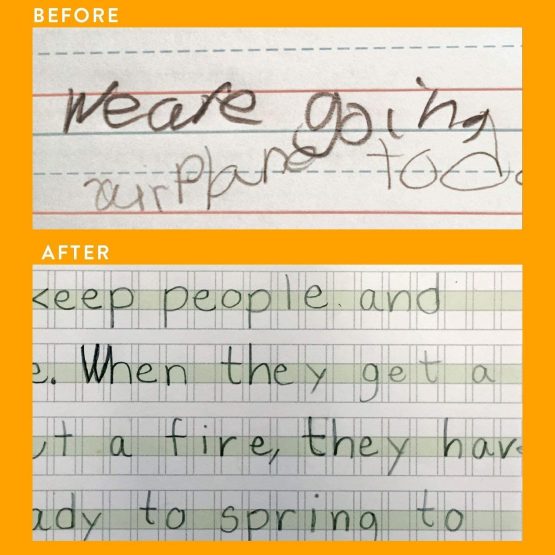 BEFORE
Weare going
airplane
AFTER
people. and
. When they get a
a fire, they
to spring to